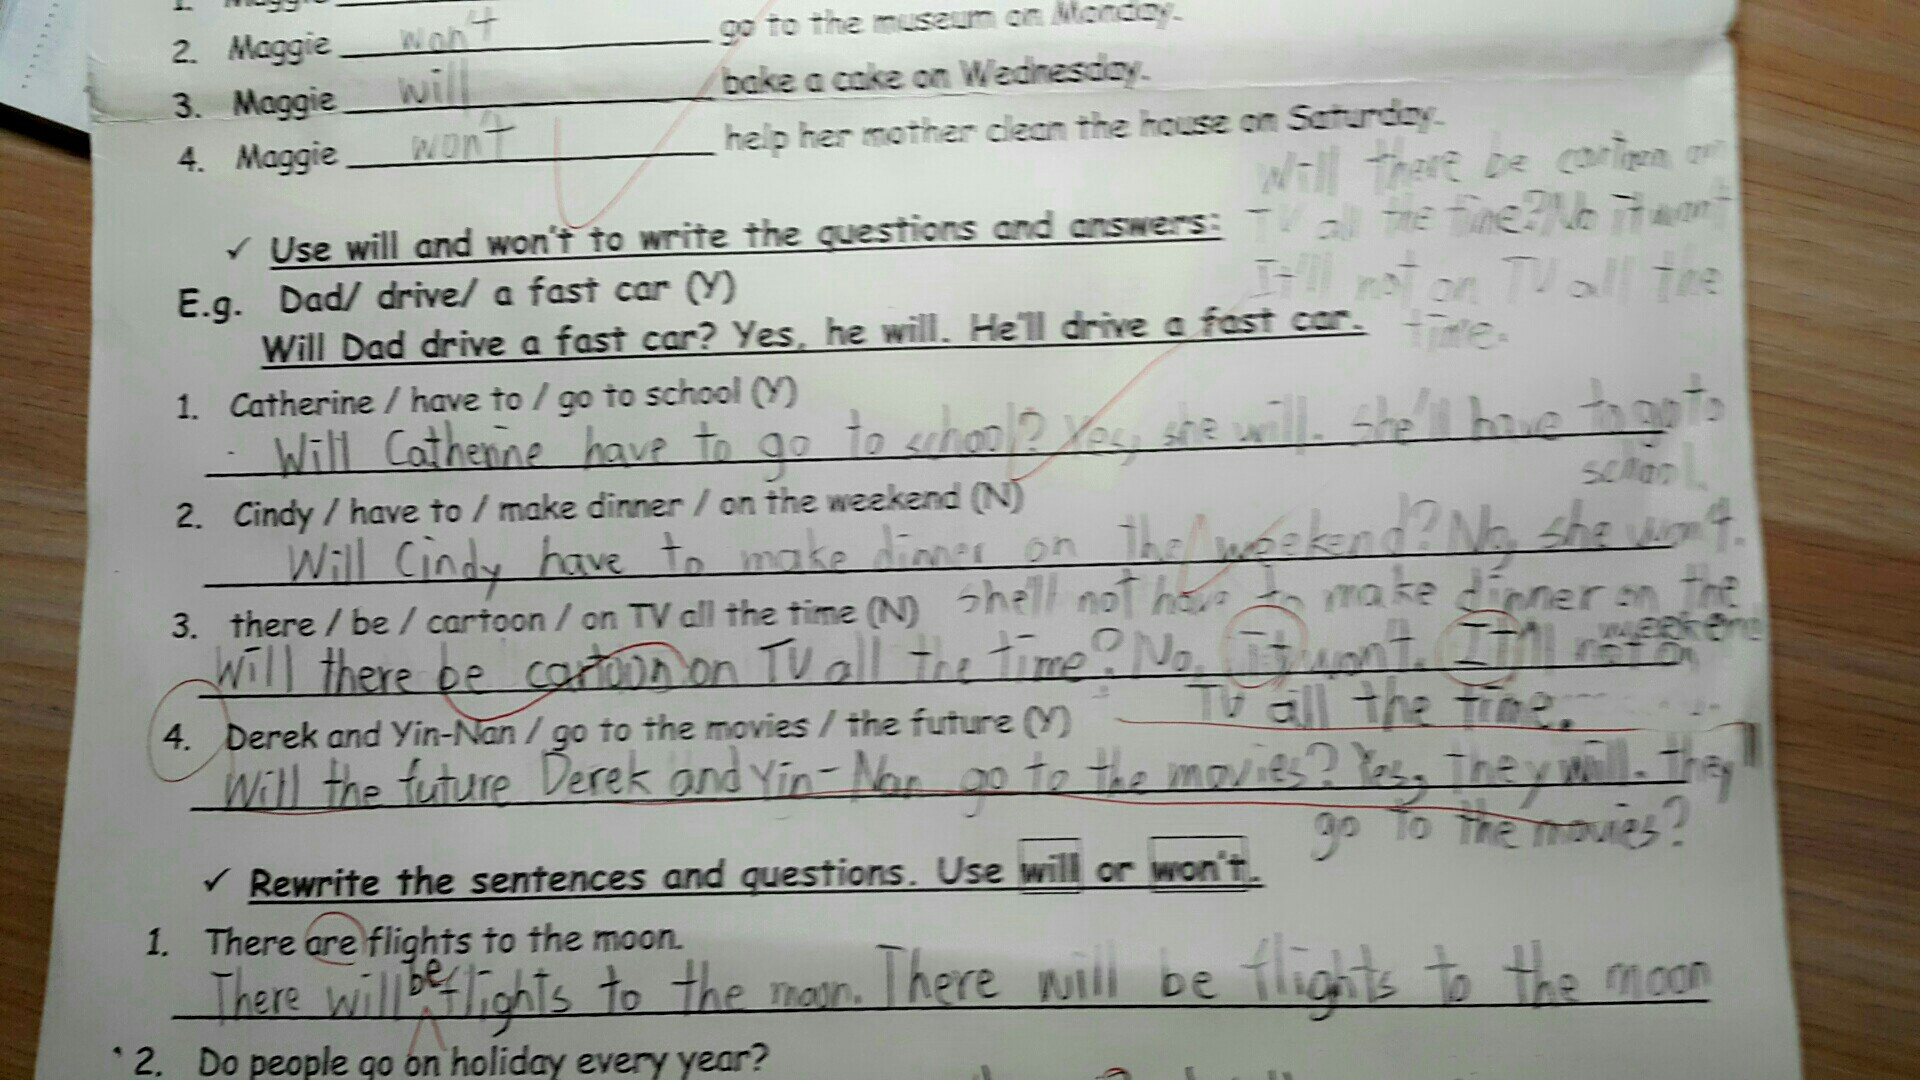 2. Maggie won't go to the museum on Monday.
3. Maggie will bake a cake on Wednesday.
4. Maggie won't help her mother clean the house on Saturday.
Will there be cartoon on
TV all the time? No it won't
It'll not on TV all the
time.
✓ Use will and won't to write the questions and answers:
E.g. Dad/ drive/ a fast car (Y)
Will Dad drive a fast car? Yes, he will. He'll drive a fast car.
1. Catherine / have to / go to school (Y)
Will Catherine have to go to school? Yes, she will. She'll have to go to
school.
2. Cindy / have to / make dinner / on the weekend (N)
Will Cindy have to make dinner on the weekend? No, she won't.
She'll not have to make dinner on the
weekend
3. there / be / cartoon / on TV all the time (N)
Will there be cartoon on TV all the time? No, it won't. It'll not on
TV all the time.
4. Derek and Yin-Nan / go to the movies / the future (Y)
Will the future Derek and Yin-Nan go to the movies? Yes, they will. They'll
go to the movies?
✓ Rewrite the sentences and questions. Use will or won't.
1. There are flights to the moon.
There will be flights to the moon. There will be flights to the moon
2. Do people go on holiday every year?